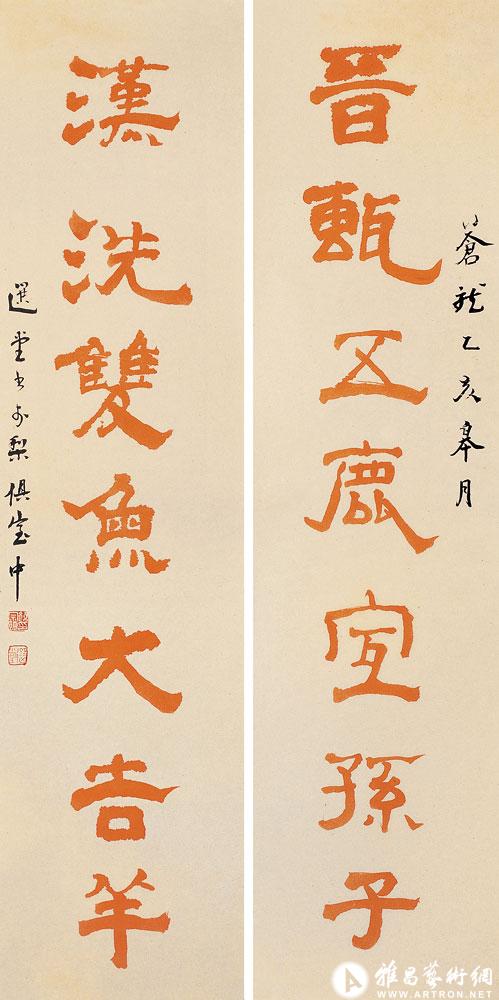 蒼龍乙亥皋月
晉甎五鹿宜孫子
漢洗雙魚大吉羊
選堂書於梨俱室中
雅昌藝術網
WWW.ARTRON.NET